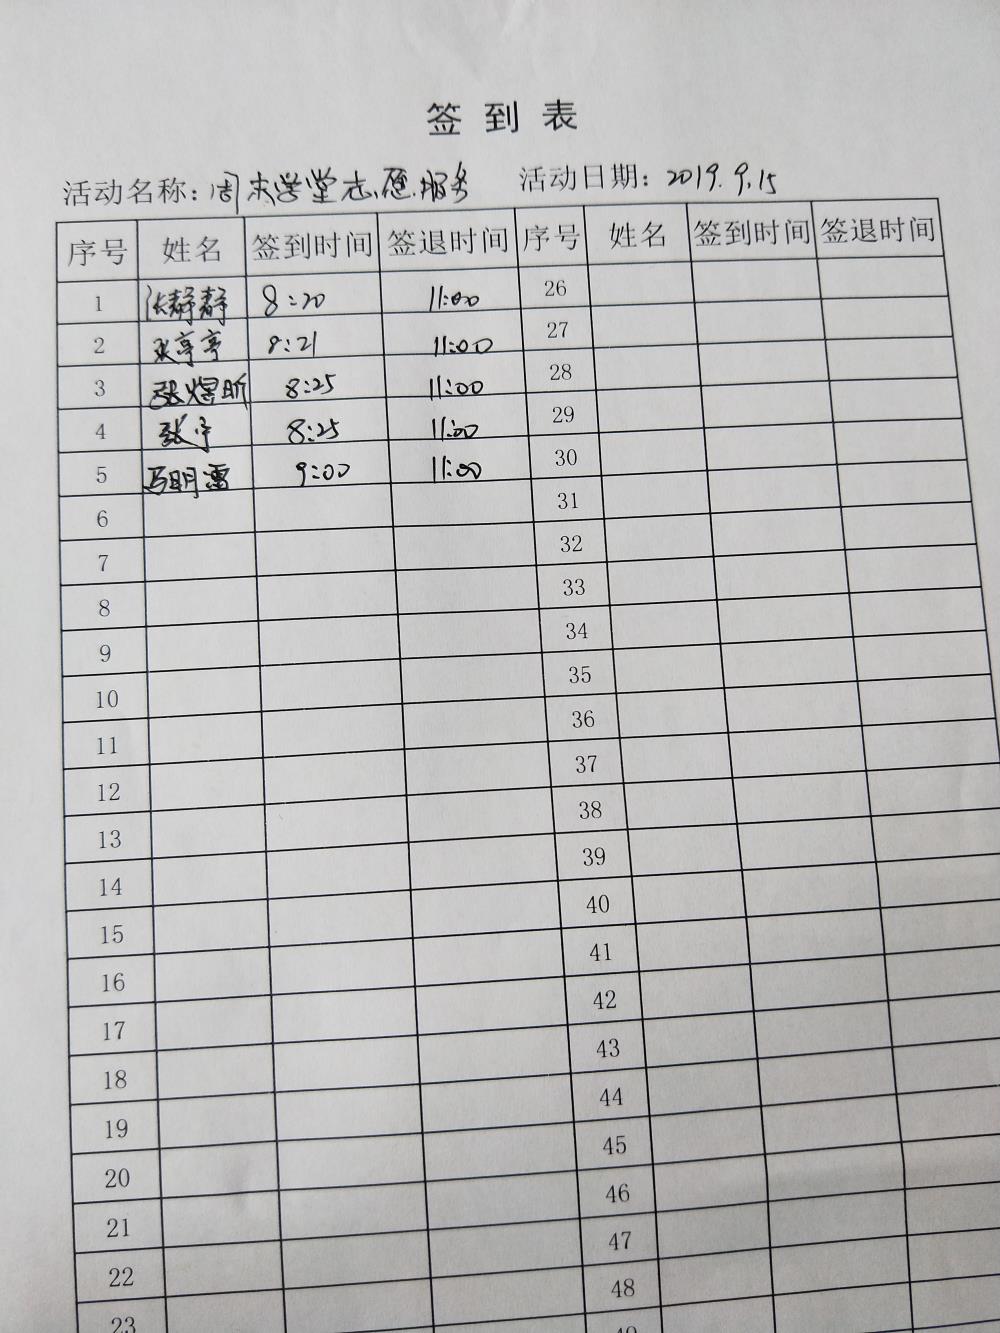 签到表
活动名称：周末学堂志愿服务 活动日期：2019.9.15
序号 姓名 签到时间 签退时间 序号 姓名 签到时间 签退时间
1 张静静 8:20 11:00 26
2 张亭亭 8:21 11:00 27
3 张煜昕 8:25 11:00 28
4 张宁 8:25 11:00 29
5 马明雷 9:00 11:00 30
6 31
7 32
8 33
9 34
10 35
11 36
12 37
13 38
14 39
15 40
16 41
17 42
18 43
19 44
20 45
21 46
22 47
23 48
49